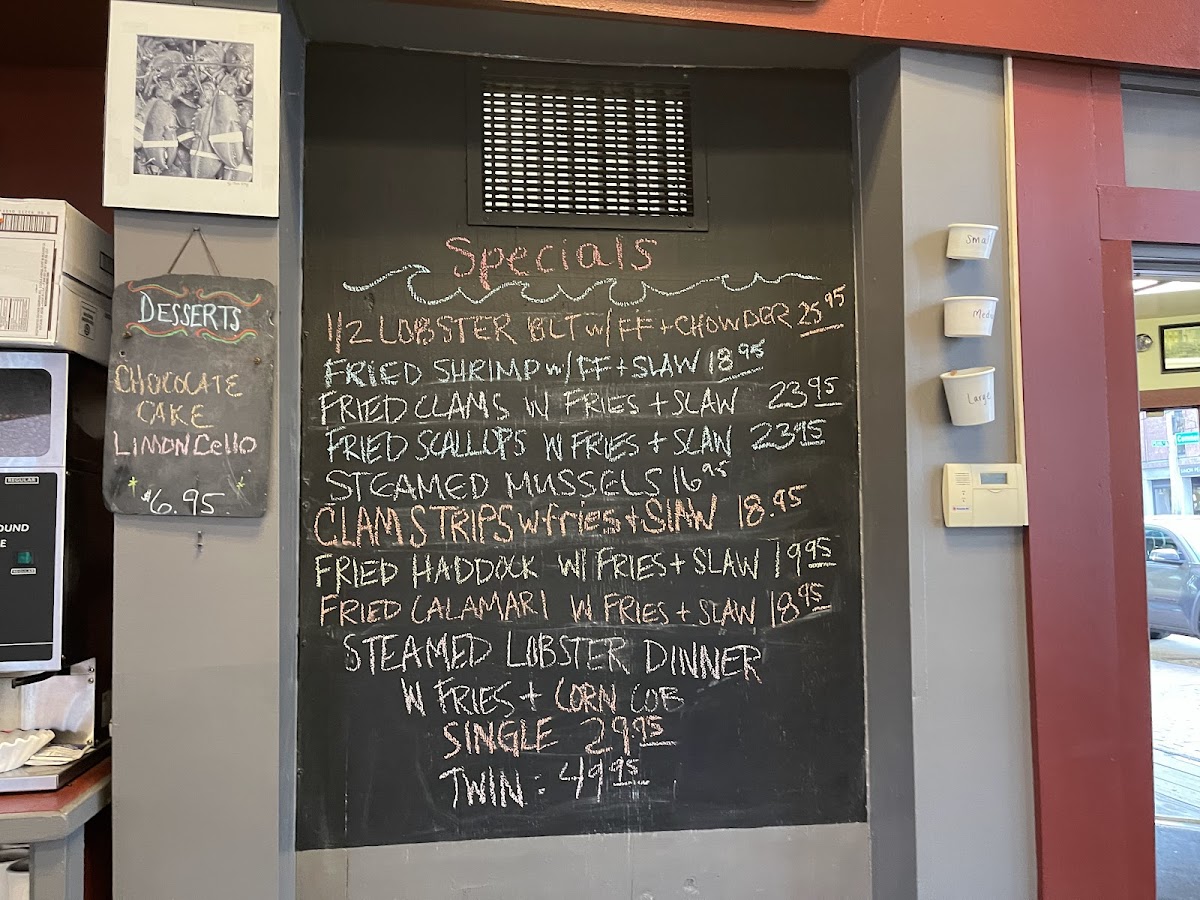 DESSERTS
CHOCOLATE
CAKE
LIMONCello
$6.95
Specials
1/2 LOBSTER BLT w/ FF + CHOWDER 25.95
FRIED SHRIMP w/ FF + SLAW 18.95
FRIED CLAMS W FRIES + SLAW 23.95
FRIED SCALLOPS W FRIES + SLAW 23.95
STEAMED MUSSELS 16.95
CLAM STRIPS w fries + SLAW 18.95
FRIED HADDOCK W/ FRIES + SLAW 19.95
FRIED CALAMARI W FRIES + SLAW 18.95
STEAMED LOBSTER DINNER
W FRIES + CORN COB
SINGLE 29.95
TWIN: 49.95
Sma
Med
Large
REGULAR
OUND
E
REGULAR